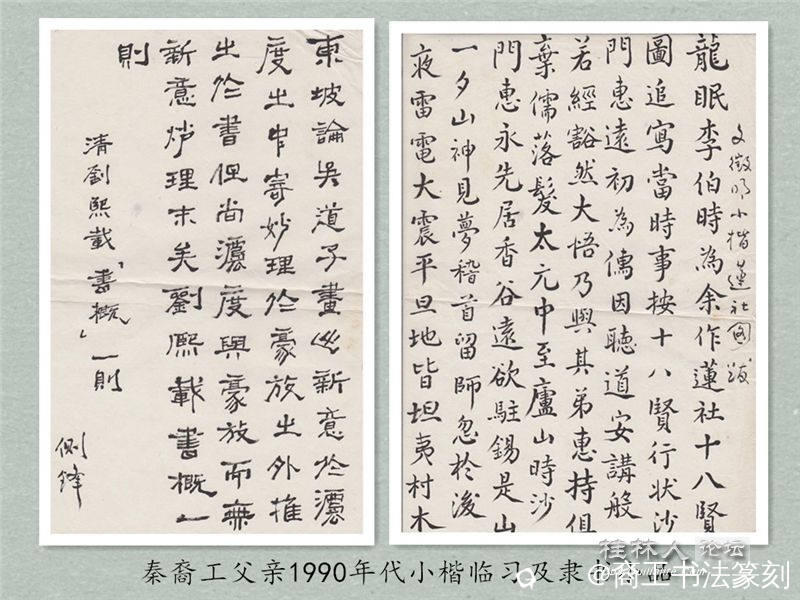 東坡論吳道子畫出新意於灋
度之中寄妙理於豪放之外推
之於書但尚灋度與豪放而無
新意妙理末矣劉熙載書概一
則
清劉熙載「書概」一則
側鋒
文徵明小楷蓮社圖跋
龍眠李伯時為余作蓮社十八賢
圖追寫當時事按十八賢行狀沙
門惠遠初為儒因聽道安講般
若經豁然大悟乃與其弟惠持俱
棄儒落髮太元中至廬山時沙
門惠永先居香谷遠欲駐錫是山
一夕山神見夢稽首留師忽於後
夜雷電大震平旦地皆坦夷村木
桂林人论坛
秦裔工父亲1990年代小楷临习及隶
@裔工书法篆刻